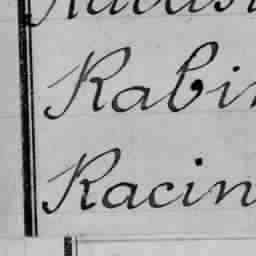 Rabin
Racin